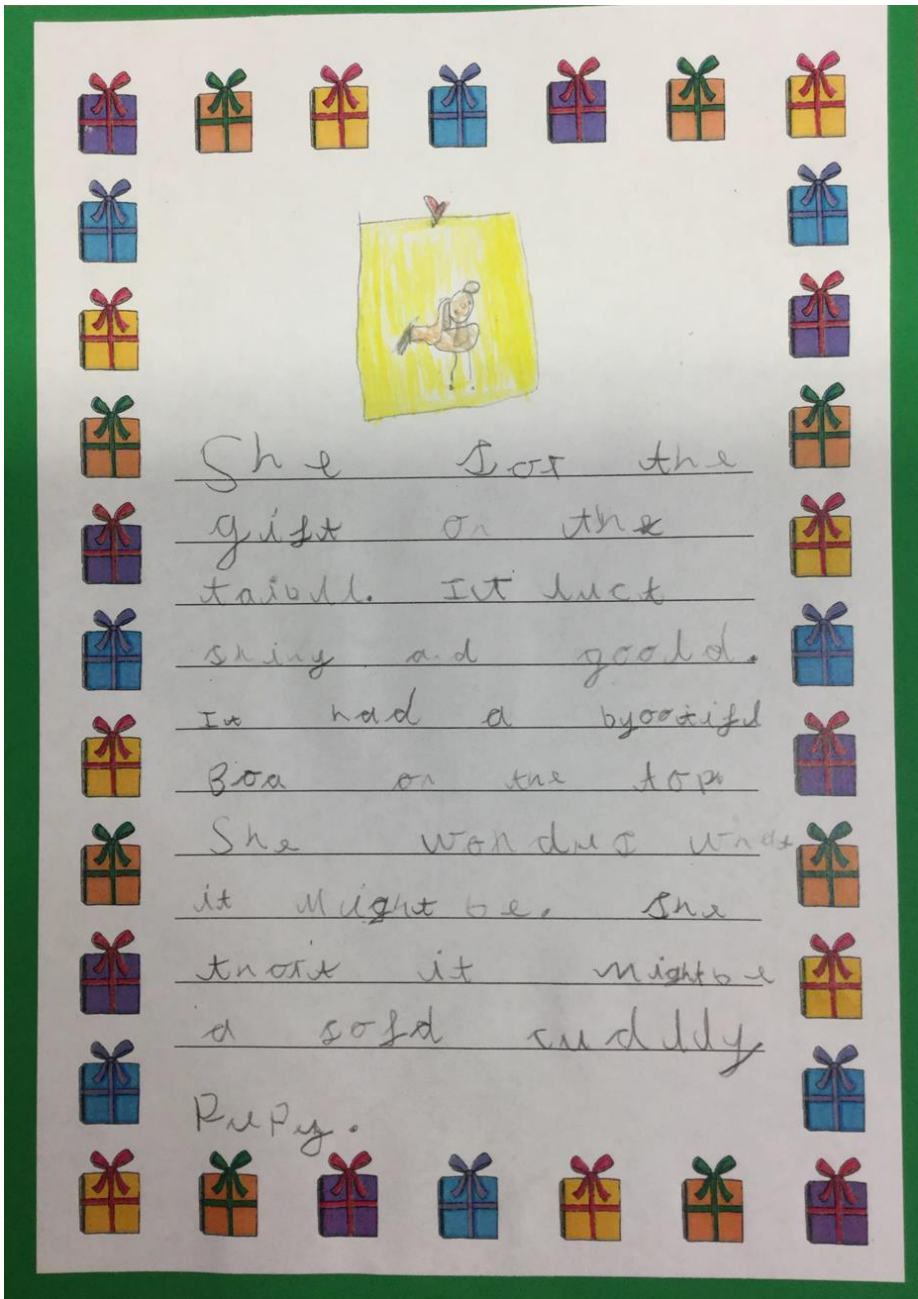 She sor the
gift on the
taibll. It luct
shiny and goold.
It had a byootifl
Boa on the top
She wondrs what
it Might be. She
thort it Might be
a sofd cuddly
PuPy.